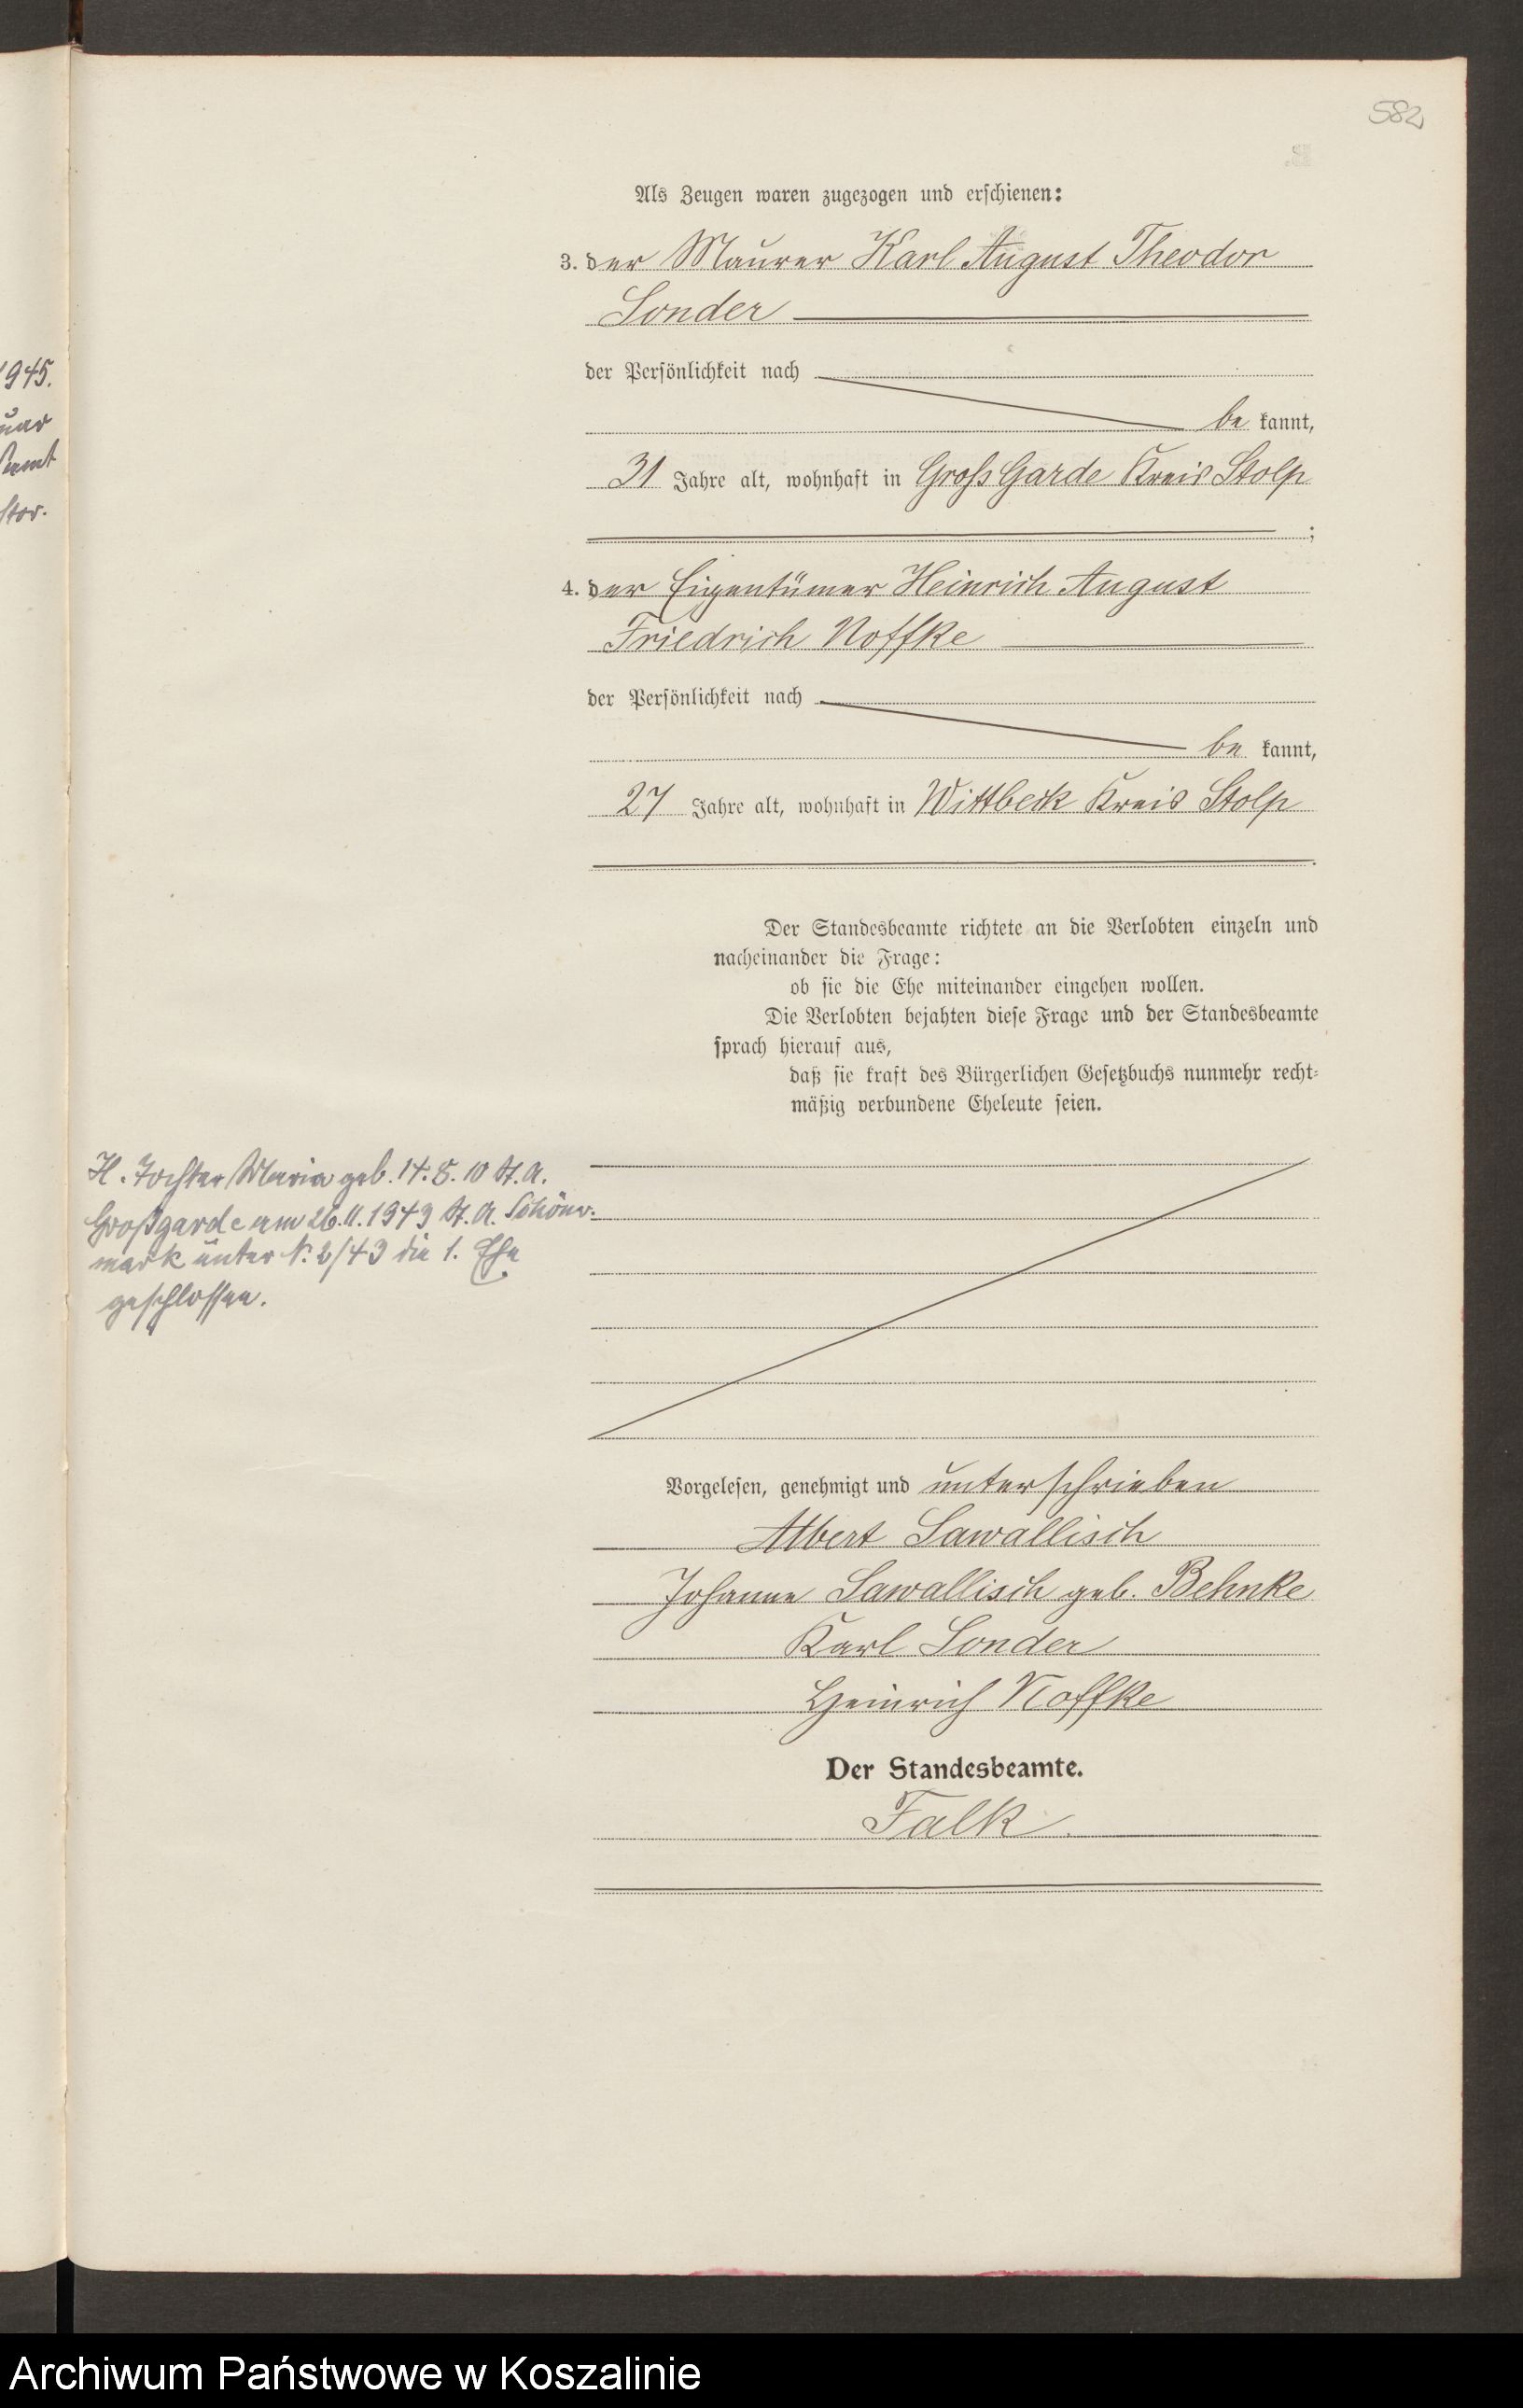 582
Als Zeugen waren zugezogen und erschienen:
3. der Maurer Karl August Theodor
Sonder
der Persönlichkeit nach
be kannt,
31 Jahre alt, wohnhaft in Gross Garde Kreis Stolp
;
4. der Eigentümer Heinrich August
Friedrich Noffke
der Persönlichkeit nach
be kannt,
27 Jahre alt, wohnhaft in Wittbeck Kreis Stolp
.
Der Standesbeamte richtete an die Verlobten einzeln und
nacheinander die Frage:
ob sie die Ehe miteinander eingehen wollen.
Die Verlobten bejahten diese Frage und der Standesbeamte
sprach hierauf aus,
daß sie kraft des Bürgerlichen Gesetzbuchs nunmehr recht-
mäßig verbundene Eheleute seien.
1945.
uar
amt
tor.
H. Tochter Maria geb. 14.8.10 St. A.
Großgarde am 26.11.1943 St. A. Schönw.
mark unter N. 2/43 die 1. Ehe
geschlossen.
Vorgelesen, genehmigt und unterschrieben
Albert Sawallisch
Johanne Sawallisch geb. Behnke
Karl Sonder
Heinrich Noffke
Der Standesbeamte.
Falk.
Archiwum Państwowe w Koszalinie